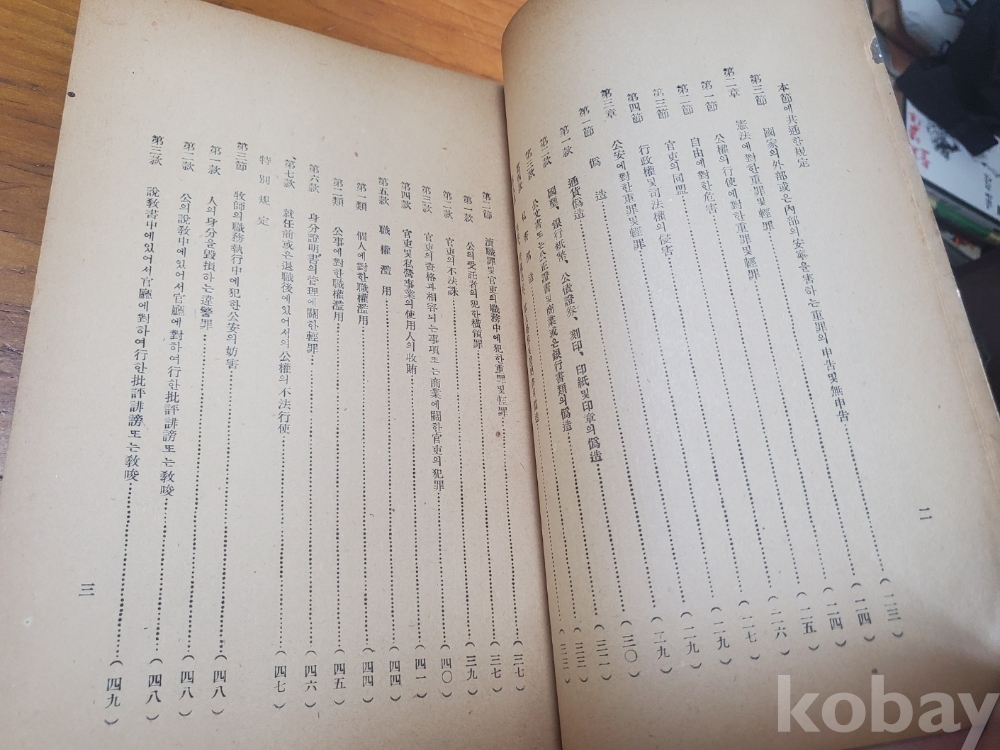 本節에共通한規定……(二三)
第三節 國家의外部或은內部의安寧을害하는重罪의申告및無申告……(二四)
第二章 憲法에對한重罪및輕罪……(二四)
第一節 公權의行使에對한重罪및輕罪……(二五)
第二節 自由에對한危害……(二六)
第三節 官吏의同盟……(二七)
第四節 行政權및司法權의侵害……(二九)
第三章 公安에對한重罪및輕罪……(二九)
第一節 僞造……(三〇)
第一款 通貨僞造……(三二)
第二款 國璽、銀行紙幣、公債證券、刻印、印紙및印章의僞造……(三三)
第三款 公文書또는公正證書및商業或은銀行書類의僞造
二
第二節 瀆職罪및官吏의職務中에犯한重罪및輕罪……(三七)
第一款 公의受託者의犯한橫領罪……(三七)
第二款 官吏의不法誅……(三九)
第三款 官吏의資格과相容되는事項또는商業에關한官吏의犯罪……(四〇)
第四款 官吏및私營事業의使用人의收賄……(四一)
第五款 職權濫用……(四四)
第一類 個人에對한職權濫用……(四四)
第二類 公事에對한職權濫用……(四五)
第六款 身分證明書의管理에關한輕罪……(四六)
第七款 就任前或은退職後에있어서의公權의不法行使……(四七)
特別規定
第三節 牧師의職務執行中에犯한公安의妨害……(四八)
第一款 人의身分을毀損하는違警罪……(四八)
第二款 公의說敎中에있어서官廳에對하여行한批評誹謗또는敎唆……(四八)
第三款 說敎書中에있어서官廳에對하여行한批評誹謗또는敎唆……(四九)
三
kobay